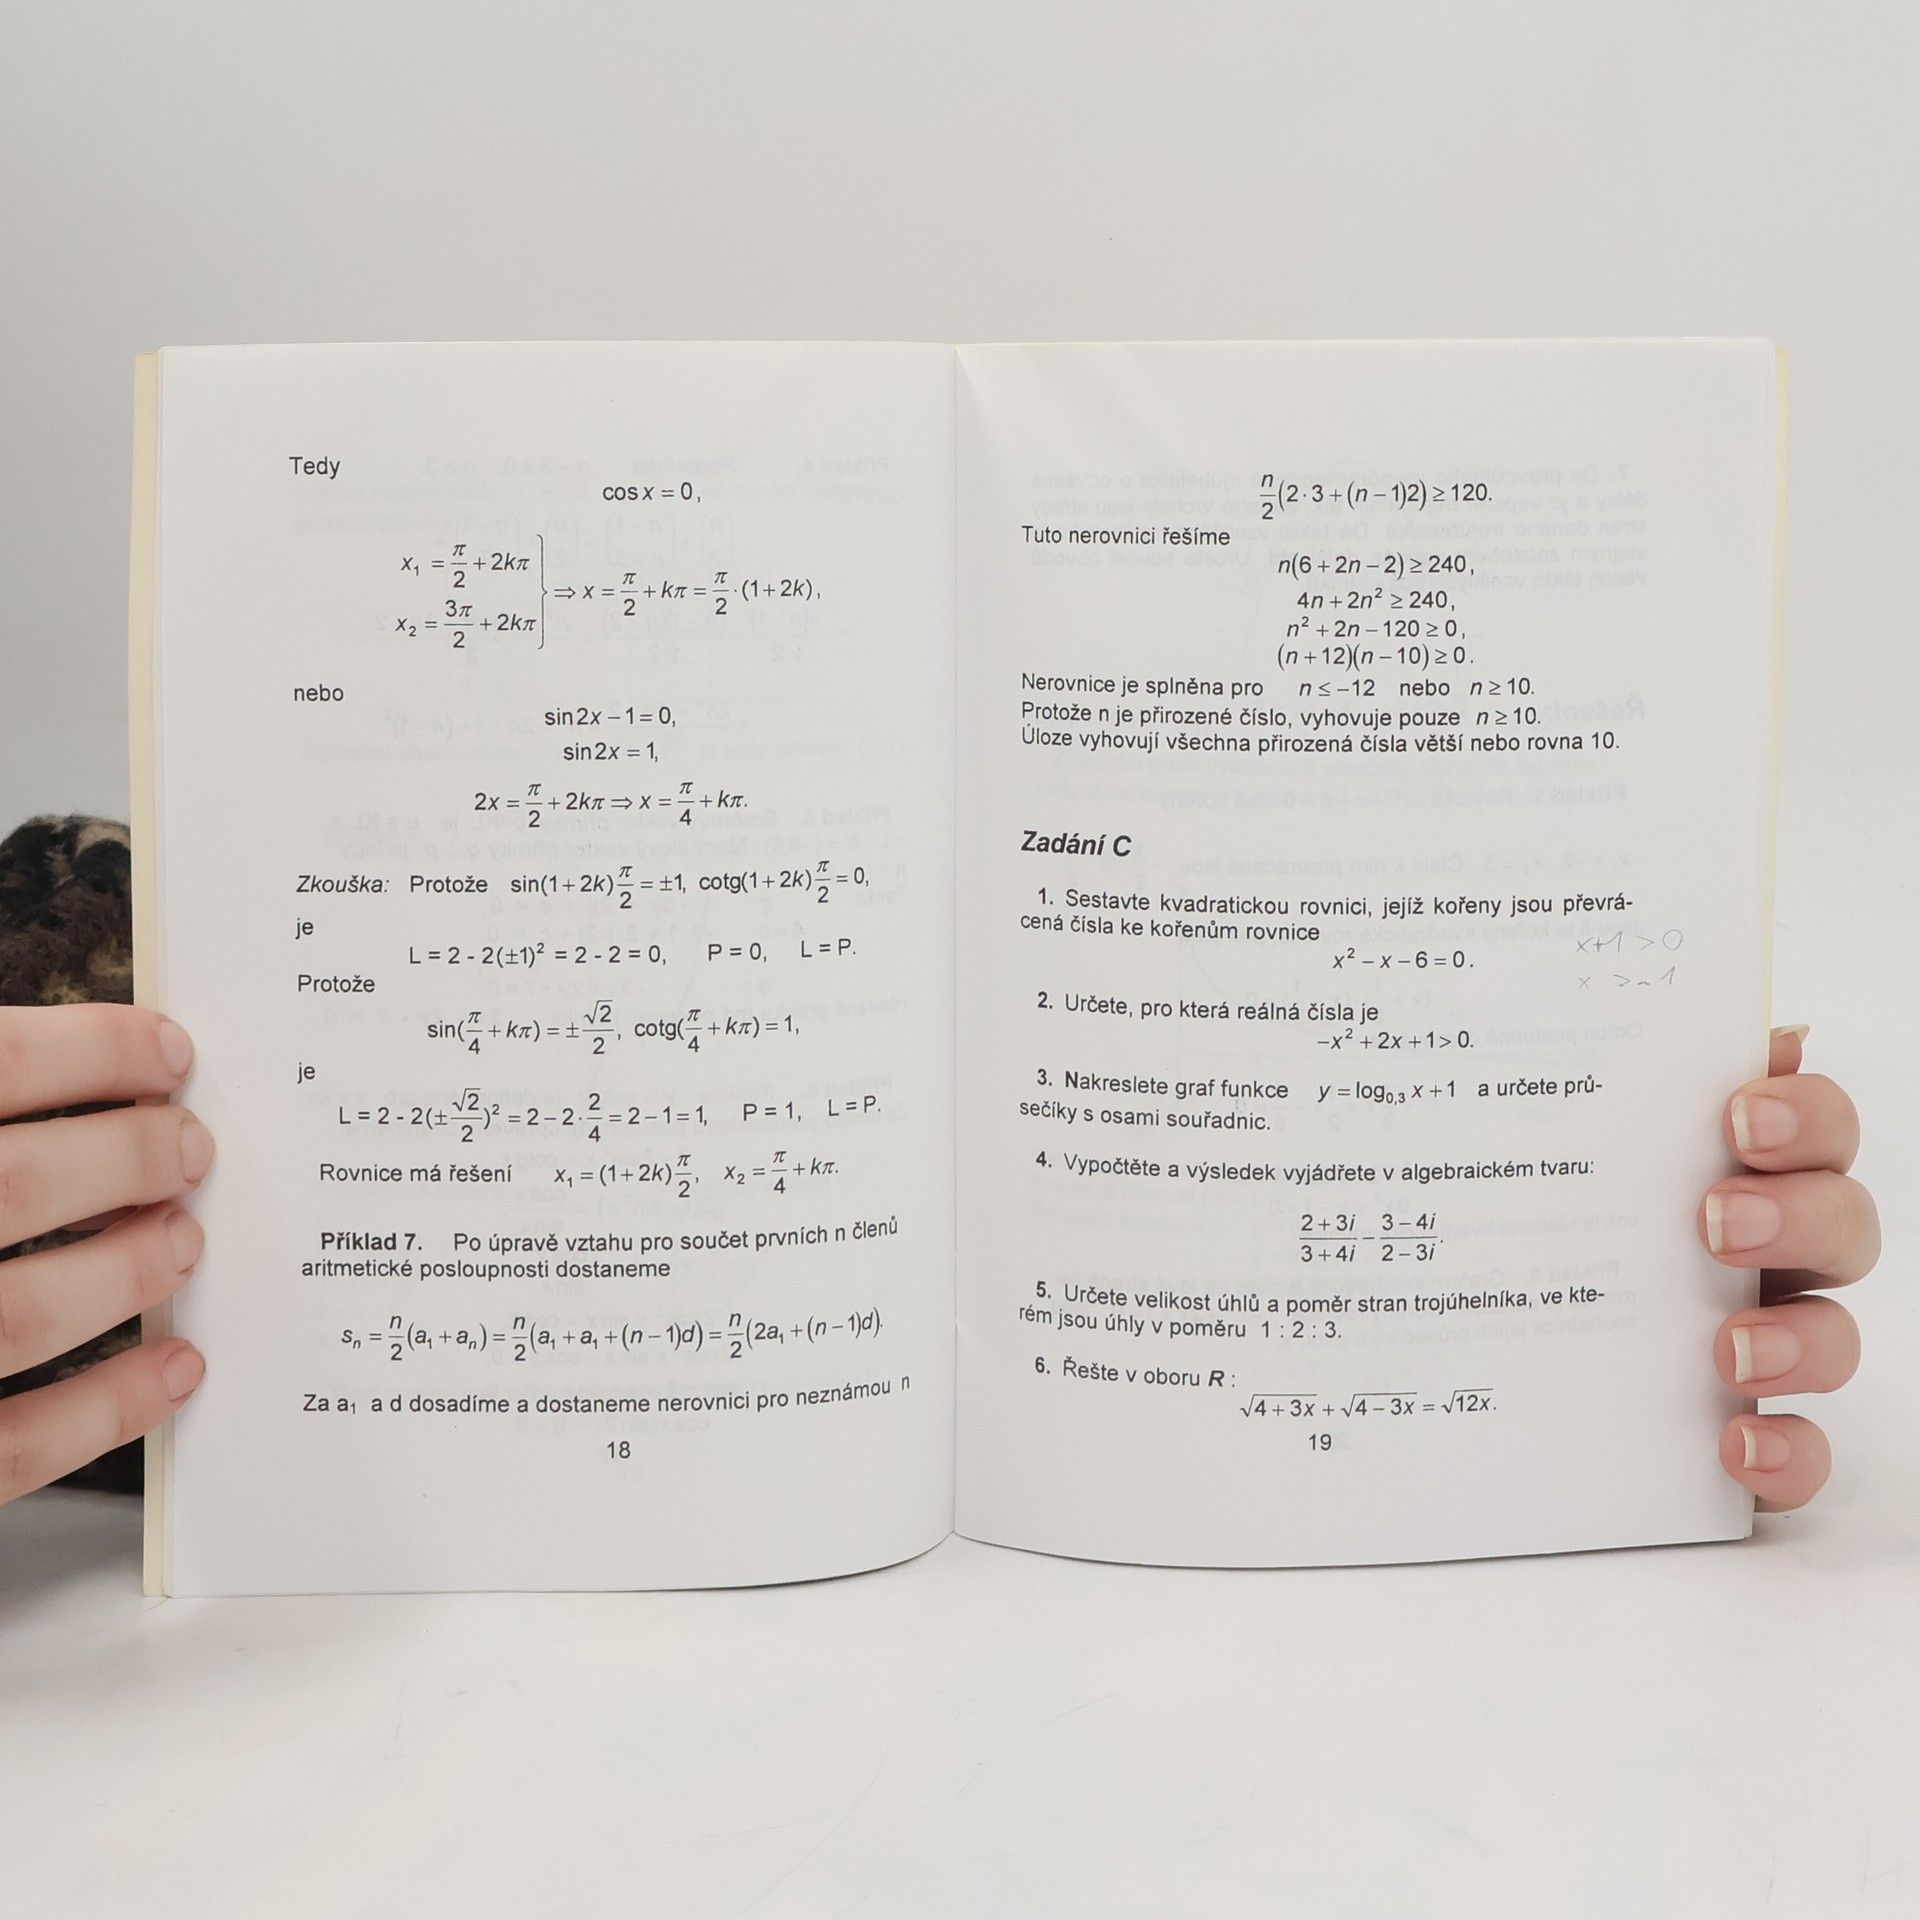 Tedy
cos x = 0,
x₁ = π/2 + 2kπ
x₂ = 3π/2 + 2kπ } ⇒ x = π/2 + kπ = π/2 · (1 + 2k),
nebo
sin 2x − 1 = 0,
sin 2x = 1,
2x = π/2 + 2kπ ⇒ x = π/4 + kπ.
Zkouška: Protože sin(1 + 2k) π/2 = ±1, cotg(1 + 2k) π/2 = 0,
je
L = 2 - 2(±1)² = 2 - 2 = 0, P = 0, L = P.
Protože
sin(π/4 + kπ) = ± √2/2, cotg(π/4 + kπ) = 1,
je
L = 2 - 2(± √2/2)² = 2 − 2 · 2/4 = 2 − 1 = 1, P = 1, L = P.
Rovnice má řešení x₁ = (1 + 2k) π/2, x₂ = π/4 + kπ.
Příklad 7. Po úpravě vztahu pro součet prvních n členů
aritmetické posloupnosti dostaneme
sₙ = n/2 (a₁ + aₙ) = n/2 (a₁ + a₁ + (n − 1)d) = n/2 (2a₁ + (n − 1)d).
Za a₁ a d dosadíme a dostaneme nerovnici pro neznámou n
18
n/2 (2 · 3 + (n − 1)2) ≥ 120.
Tuto nerovnici řešíme
n(6 + 2n − 2) ≥ 240,
4n + 2n² ≥ 240,
n² + 2n − 120 ≥ 0,
(n + 12)(n − 10) ≥ 0.
Nerovnice je splněna pro n ≤ −12 nebo n ≥ 10.
Protože n je přirozené číslo, vyhovuje pouze n ≥ 10.
Úloze vyhovují všechna přirozená čísla větší nebo rovna 10.
Zadání C
1. Sestavte kvadratickou rovnici, jejíž kořeny jsou převrá-
cená čísla ke kořenům rovnice
x² − x − 6 = 0.
x+1 > 0
x > -1
2. Určete, pro která reálná čísla je
−x² + 2x + 1 > 0.
3. Nakreslete graf funkce y = log₀,₃ x + 1 a určete prů-
sečíky s osami souřadnic.
4. Vypočtěte a výsledek vyjádřete v algebraickém tvaru:
(2 + 3i)/(3 + 4i) − (3 − 4i)/(2 − 3i).
5. Určete velikost úhlů a poměr stran trojúhelníka, ve kte-
rém jsou úhly v poměru 1 : 2 : 3.
6. Řešte v oboru R :
√(4 + 3x) + √(4 − 3x) = √(12x).
19